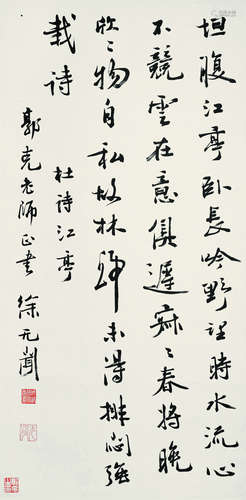 坦腹江亭卧長吟野望時水流心
不競雲在意俱遲寂〻春將晚
欣〻物自私故林歸未得排悶強
裁詩
杜詩江亭
郭克老師正書 徐无聞